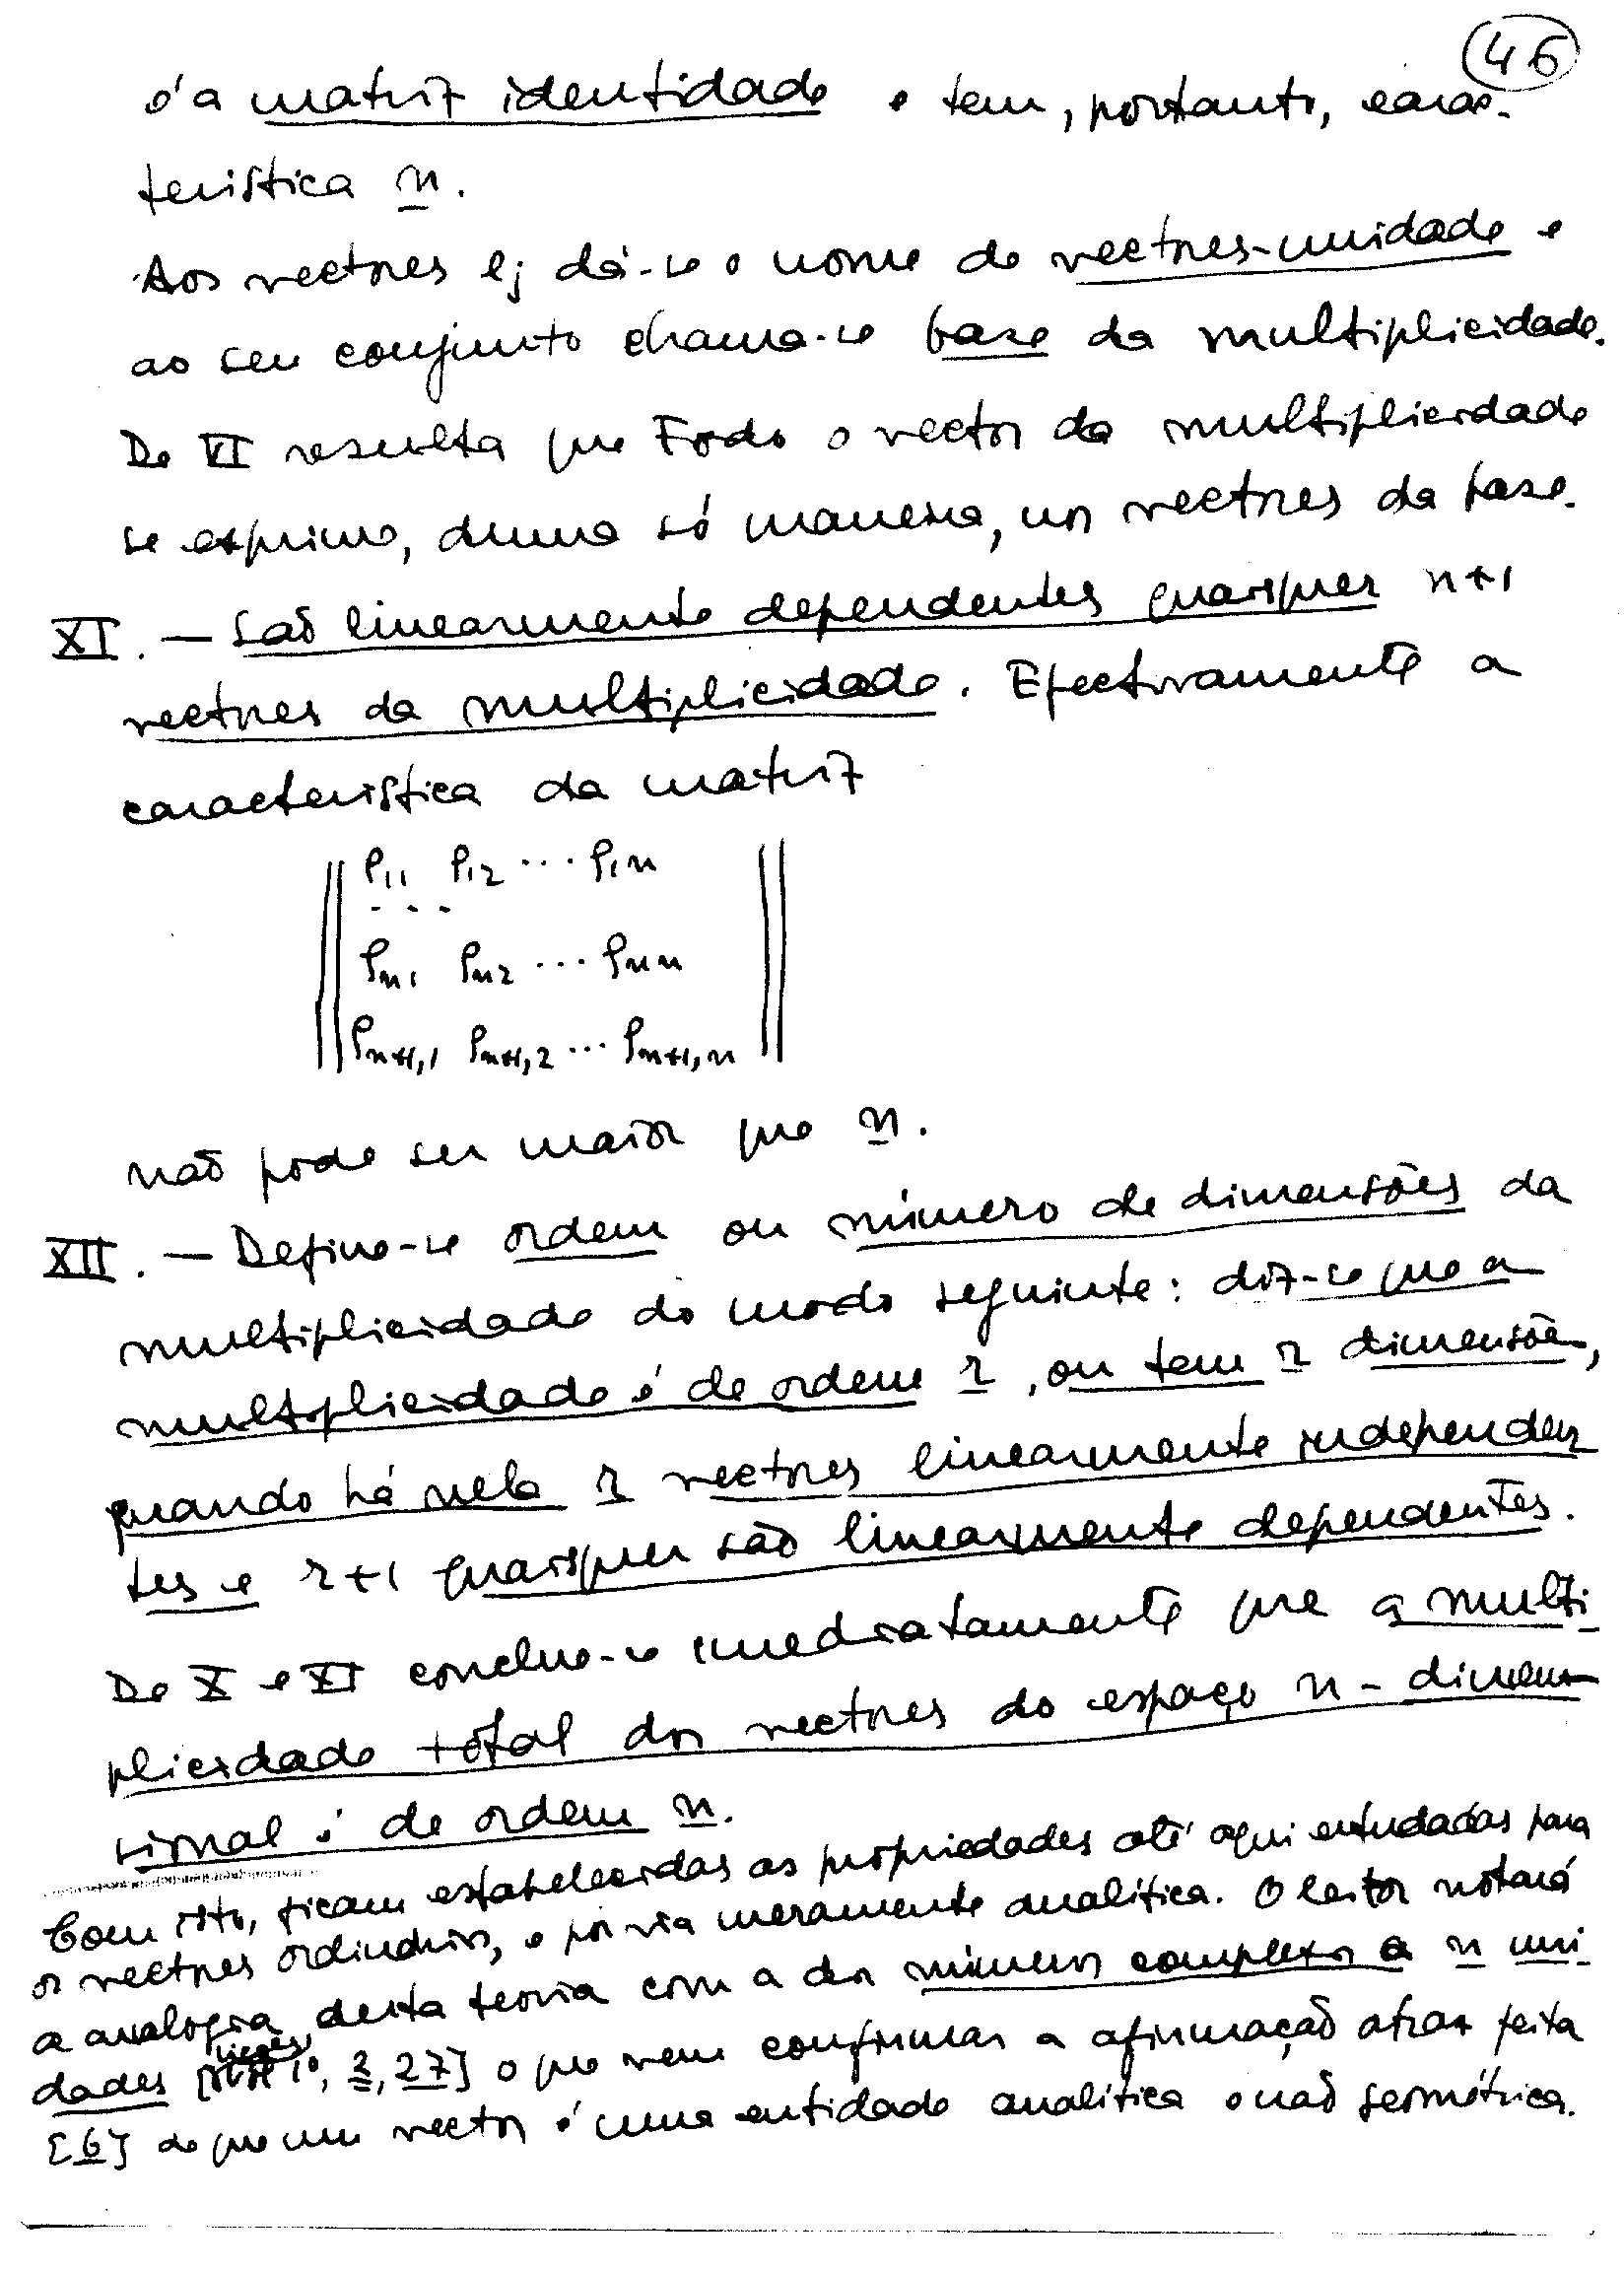 46
é a matriz identidade e tem, portanto, carac-
terística n.
Aos vectores ej dá-se o nome de vectores-unidade e
ao seu conjunto chama-se base da multiplicidade.
De VI resulta que todo o vector da multiplicidade
se exprime, duma só maneira, nos vectores da base.
XI. — São linearmente dependentes quaisquer n+1
vectores da multiplicidade. Efectivamente a
característica da matriz
ρ11 ρ12 ... ρ1n
. . .
ρn1 ρn2 ... ρnn
ρn+1,1 ρn+1,2 ... ρn+1,n
não pode ser maior que n.
XII. — Define-se ordem ou número de dimensões da
multiplicidade do modo seguinte: diz-se que a
multiplicidade é de ordem r, ou tem r dimensões,
quando há nela r vectores linearmente independen
tes e r+1 quaisquer são linearmente dependentes.
De X e XI conclue-se imediatamente que a multi
plicidade total dos vectores do espaço n-dimen-
sional é de ordem n.
Com isto, ficam estabelecidas as propriedades até aqui estudadas para
os vectores ordinários, e por via meramente analítica. O leitor notará
a analogia desta teoria com a dos números complexos a n uni
dades [1º, 3, 27] o que vem confirmar a afirmação atraz feita
[6] de que um vector é uma entidade analítica e não geométrica.